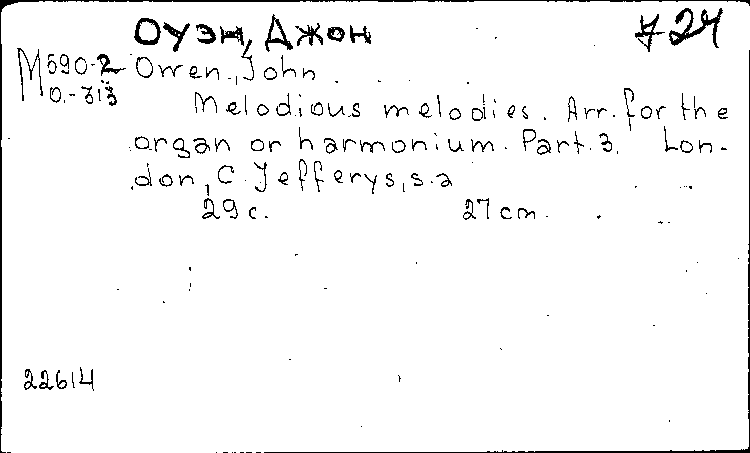 Оуэн, Джон
М590-2 Owen, John
0.-313
Melodious melodies. Arr. for the
organ or harmonium. Part. 3. Lon-
don, C. Jefferys, s.a
29 c. 27 cm.
22614